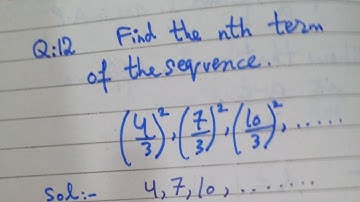 Q:12 Find the nth term
of the sequence.
(4/3)², (7/3)², (10/3)², .....
Sol:- 4, 7, 10, .......